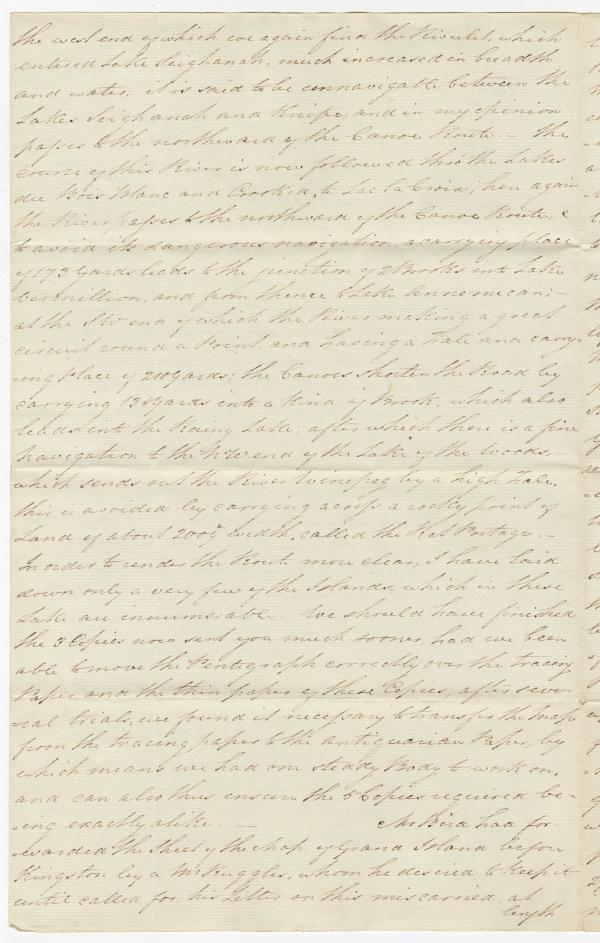 the west end of which we again find the Rivulet, which
entered Lake Seighanah, much increased in breadth
and water; it is said to be unnavigable between the
Lakes Seighanah and Knife, and in my opinion
passes to the northward of the Canoe Route. – The
course of this River is now followed thro the Lakes
du Bois Blanc and Crooked, to Lac la Croix; here again
the River passes to the northward of the Canoe Route, &
to avoid its dangerous navigation, a carrying place
of 173 Yards leads to the junction of 2 Brooks into Lake
Vermillion, and from thence to Lake Annemecan; –
at the SW end of which the River making a great
circuit round a Point, and having a Fale and carry-
-ing Place of 210 Yards; the Canoes shorten the Road by
carrying 138 Yards into a kind of Brook, which also
leads into the Rainy Lake, after which there is a fine
navigation to the NW end of the Lake of the Woods, –
which sends out the River Winepeg by a high Fale.
this is avoided by carrying across a rocky point of
Land of about 200 Y width, called the Rat Portage. –
In order to render the Route more clear, I have laid
down only a very few of the Islands, which in these
Lake are innumerable. We should have finished
the 3 Copies now sent you much sooner, had we been
able to move the Pentograph correctly over the tracing
Paper and the thin paper of these Copies; after seve-
-ral trials, we found it necessary to transfer the Map
from the tracing paper to the antiquarian Paper, by
which means we had one steady Body to work on,
and can also thus ensure the Copies required be-
-ing exactly alike. – Mr Bird had for-
-warded the Sheet of the Map of Grand Island before
Kingston by a Mr Ruggles, whom he desired to keep it
until called for, his Letter on this miscarried, at
length